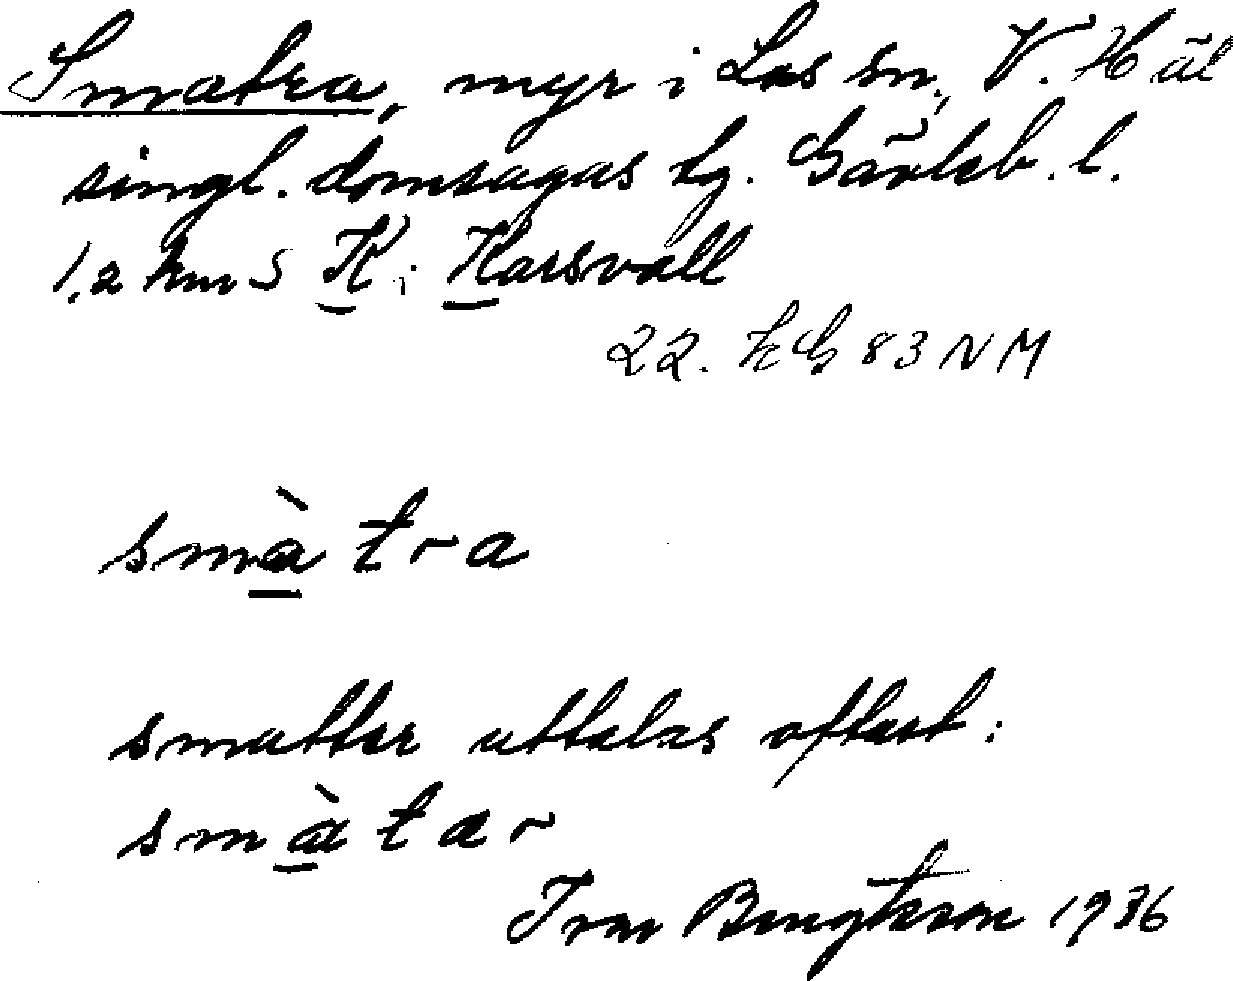 Smatra, myr i Los sn, V. Häl
singl. domsagas tg. Gävleb. l.
1,2 km S K i Karsvall
22. EG 83 NM
smàtra
smatter uttalas oftast:
smàtær
Ivar Bengtsson 1936